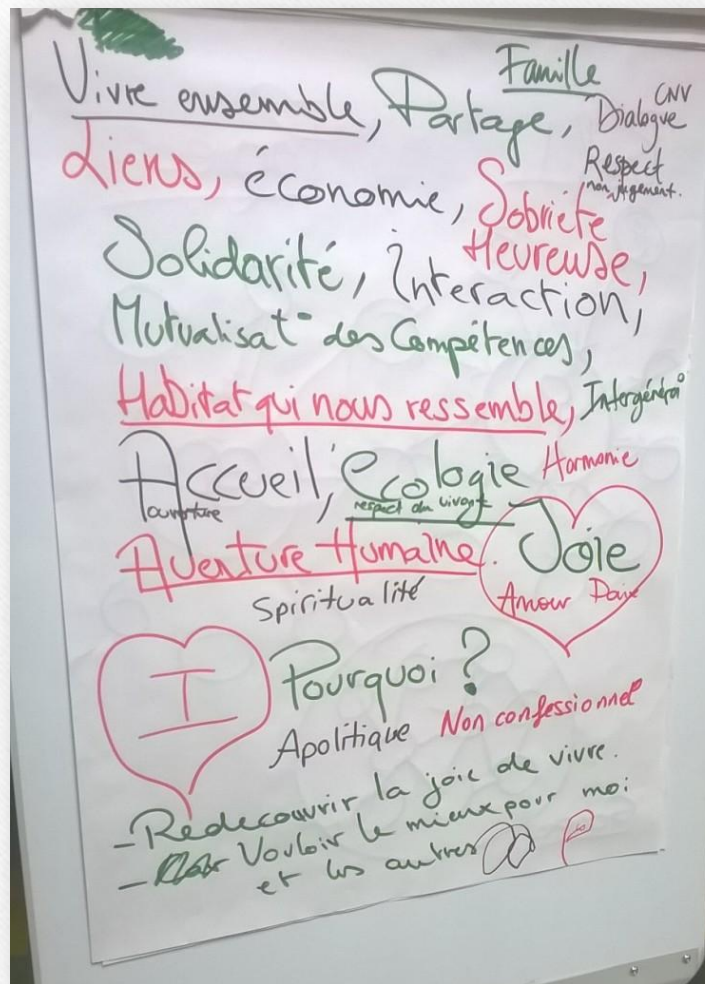 Famille
Vivre ensemble, Partage, Dialogue CNV
Respect
non jugement.
Liens, économie, Sobriété
Heureuse,
Solidarité, Interaction,
Mutualisat° des Compétences,
Habitat qui nous ressemble, Intergénéra°
Accueil, écologie Harmonie
ouverture respect du vivant
Aventure Humaine. Joie
Spiritualité Amour Paix
I Pourquoi ?
Apolitique Non confessionnel
- Redecouvrir la joie de vivre.
- Vouloir le mieux pour moi
et les autres